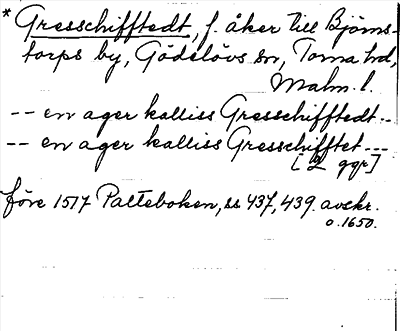 * Gresschifftedt, f. åker till Björns-
torps by, Gödelövs sn, Torna hd,
Malm. l.
-- en ager kalliss Gresschifftedt --
-- en ager kalliss Gresschifftet ---
[2 ggr]
före 1517 Palteboken, ss 437, 439. avskr.
o. 1650.